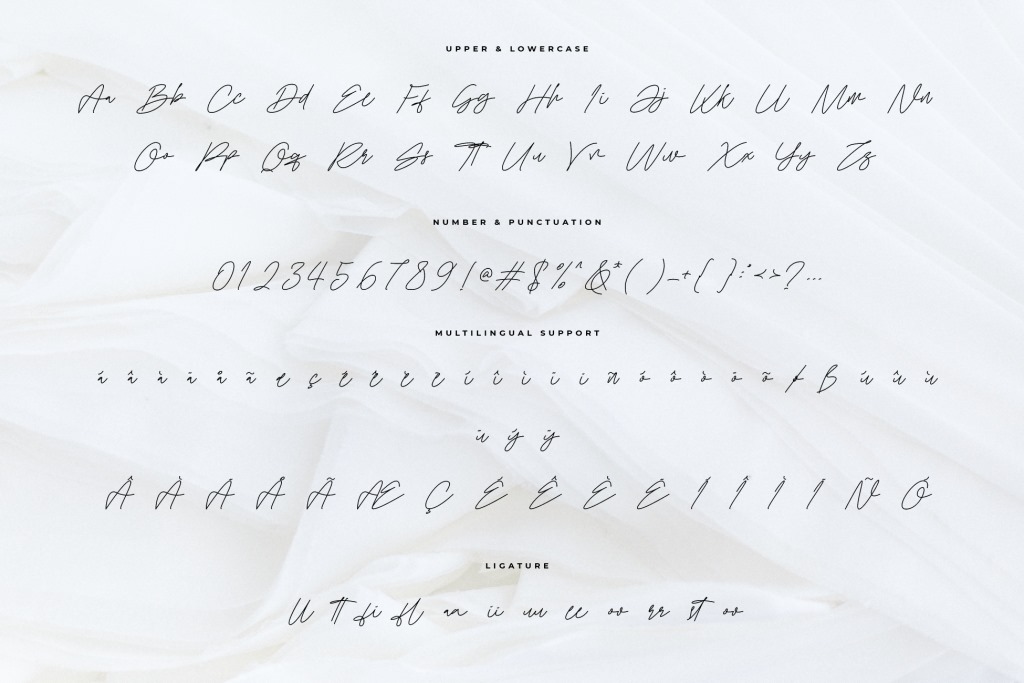 UPPER & LOWERCASE
Aa Bb Cc Dd Ee Ff Gg Hh Ii Jj Kk Ll Mm Nn
Oo Pp Qq Rr Ss Tt Uu Vv Ww Xx Yy Zz
NUMBER & PUNCTUATION
0123456789!@#$%^&*()_+{}:<>?...
MULTILINGUAL SUPPORT
á â à ä å ã æ ç é ê è ë í î ì ï i ñ ó ô ò ö õ ø ß ú û ù
ü ý ÿ
Â À Ä Å Ã Æ Ç É Ê È Ë Í Î Ì Ï Ñ Ó
LIGATURE
ll tt fi fl aa ii uu ee oo rr st ov